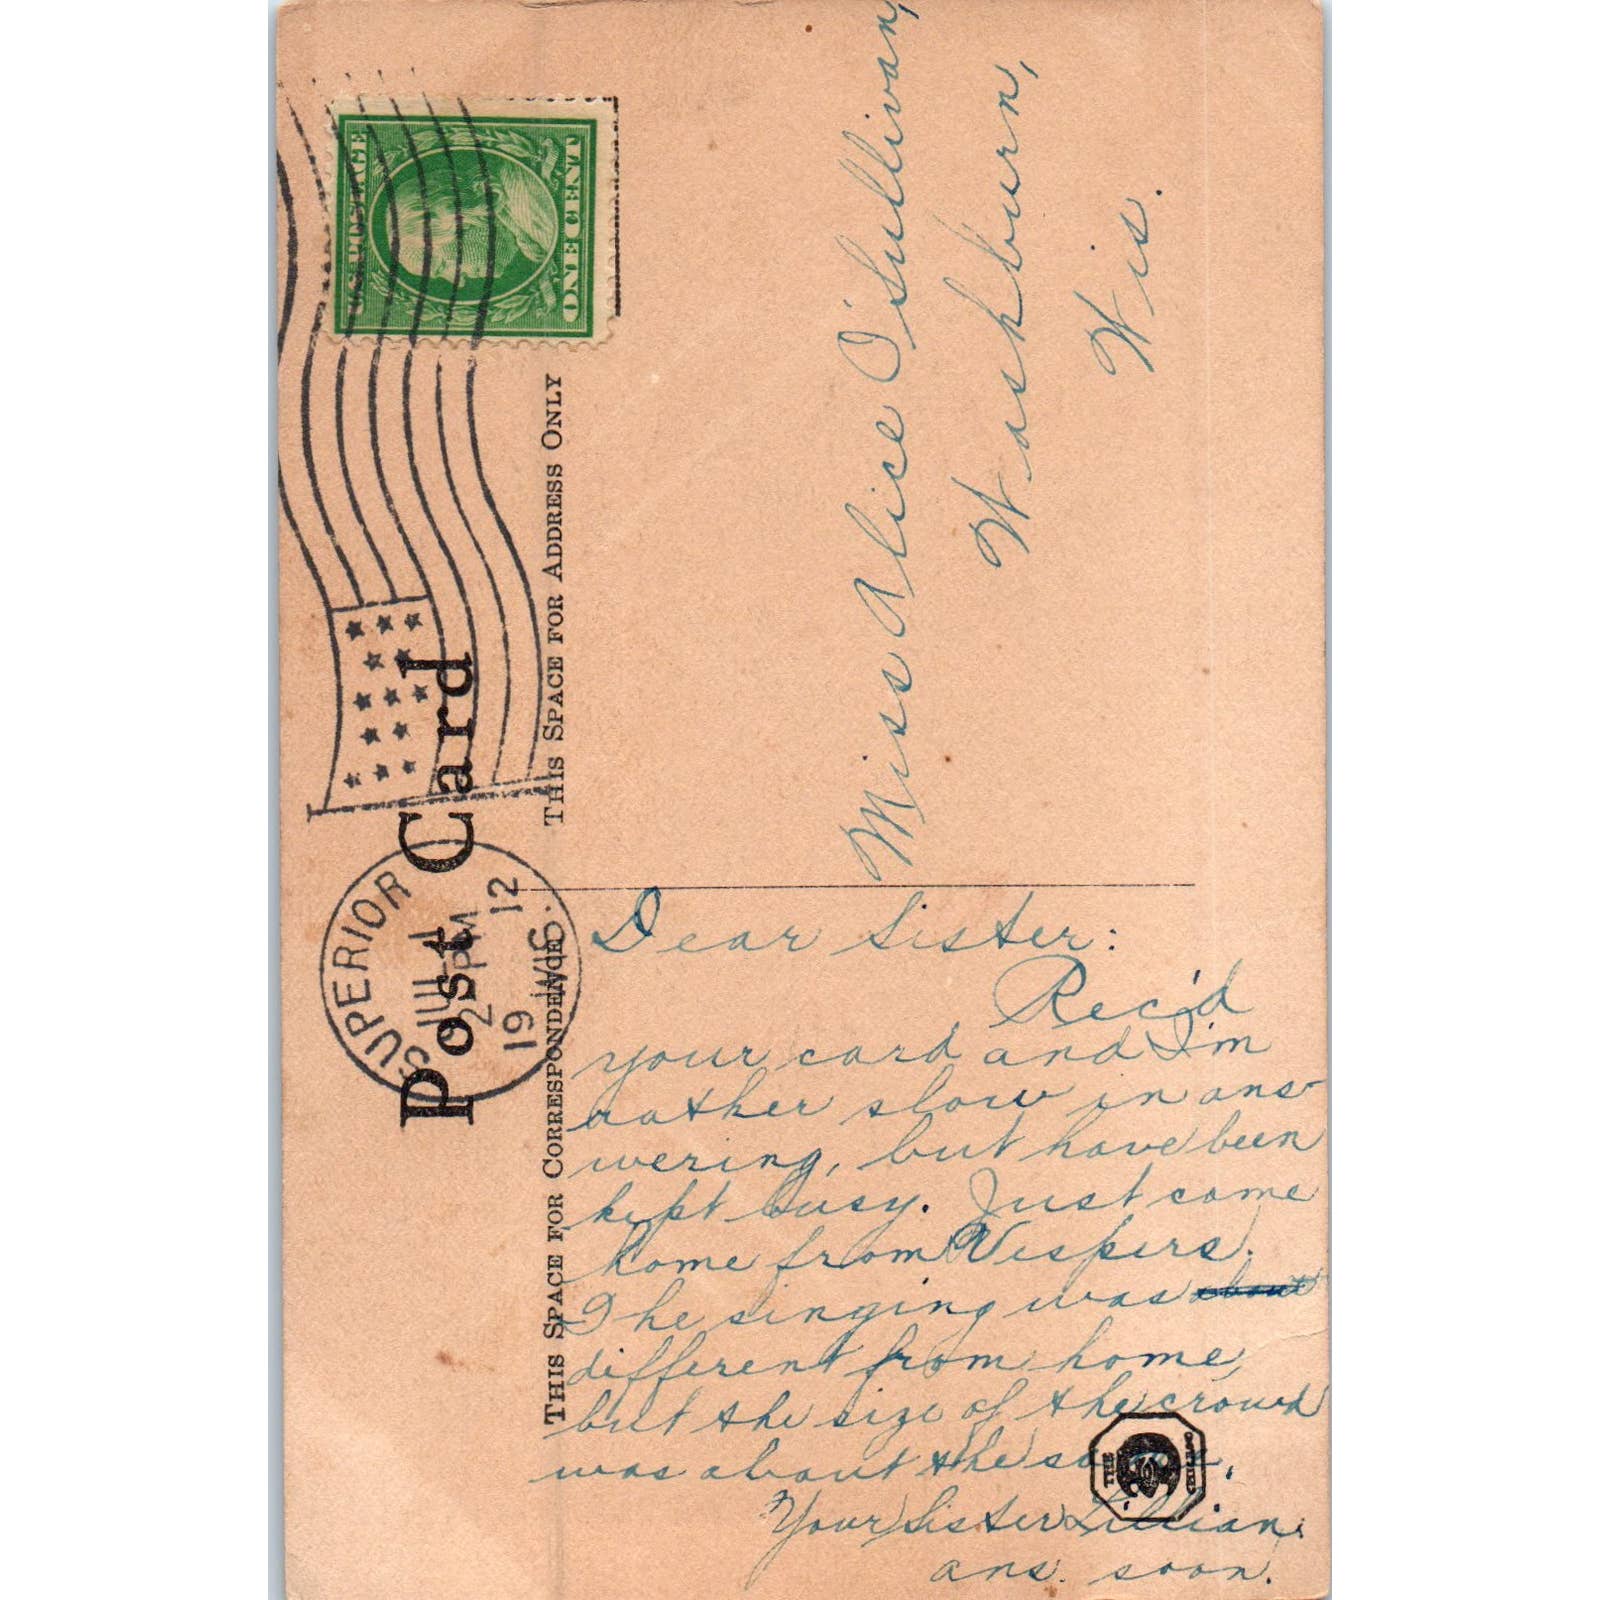 U.S. POSTAGE
ONE CENT
SUPERIOR
JUL 1
2 PM
19 12
WIS.
Post Card
THIS SPACE FOR CORRESPONDENCE
THIS SPACE FOR ADDRESS ONLY
Miss Alice O'Sullivan,
Washburn,
Wis.
Dear Sister:
Rec'd
your card and I'm
rather slow in ans
wering, but have been
kept busy. Just came
home from Vespers.
The singing was about
different from home,
but the size of the crowd
was about the same.
Your Sister Lillian.
ans. soon.
THE